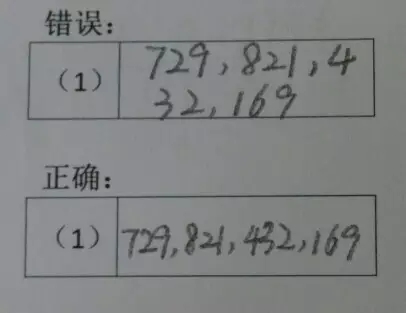 错误：
（1） 729，821，4
32，169
正确：
（1） 729，821，432，169